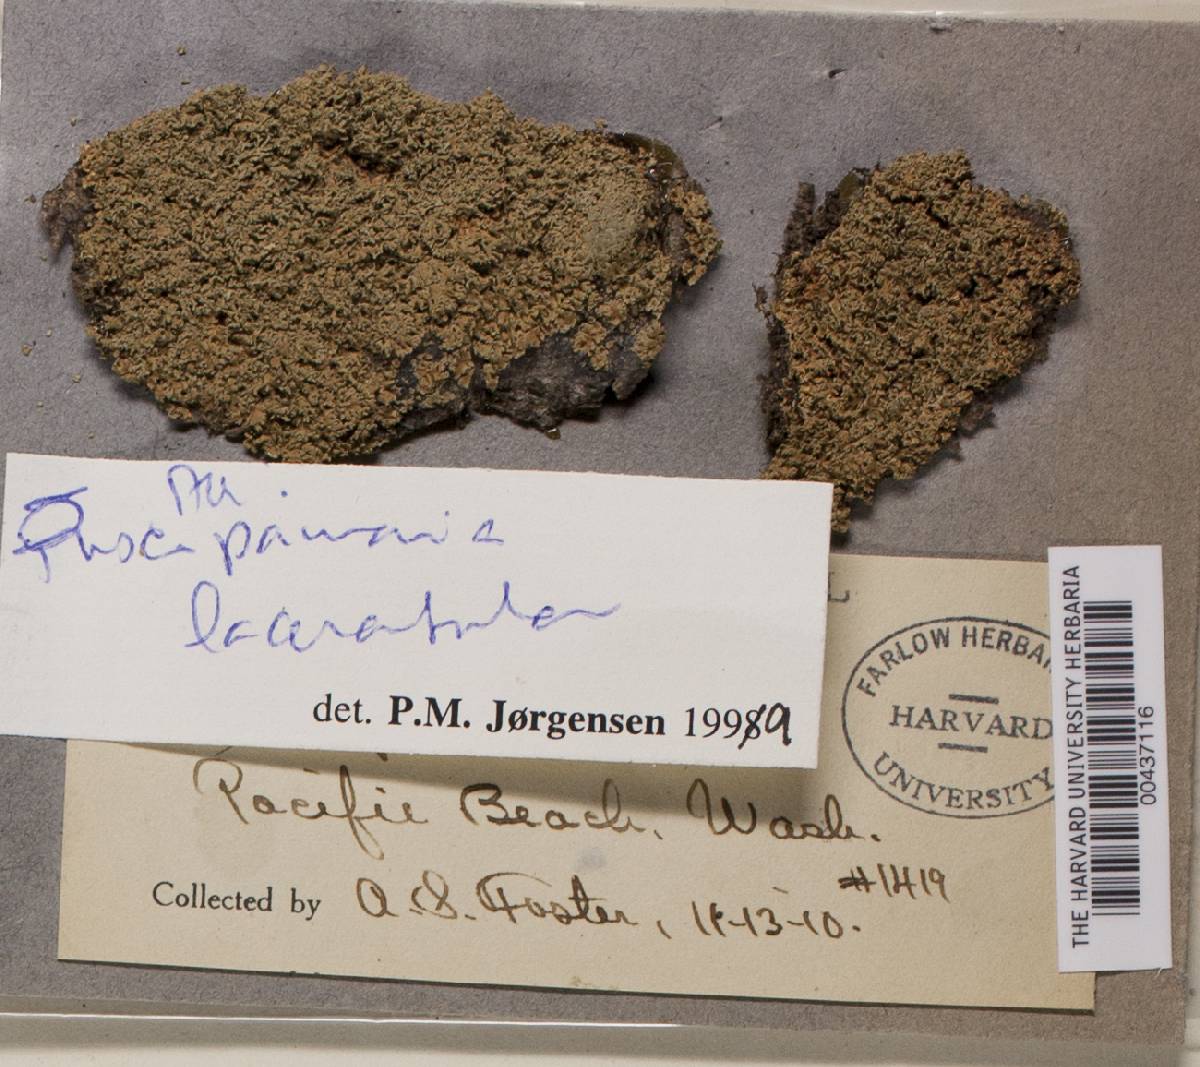 Fuscopannaria
laceratula
det. P.M. Jørgensen 1999
FARLOW HERBAR
HARVARD
UNIVERSITY
Pacific Beach, Wash.
Collected by A.S. Foster, 11-13-10. #1419
THE HARVARD UNIVERSITY HERBARIA
00437116